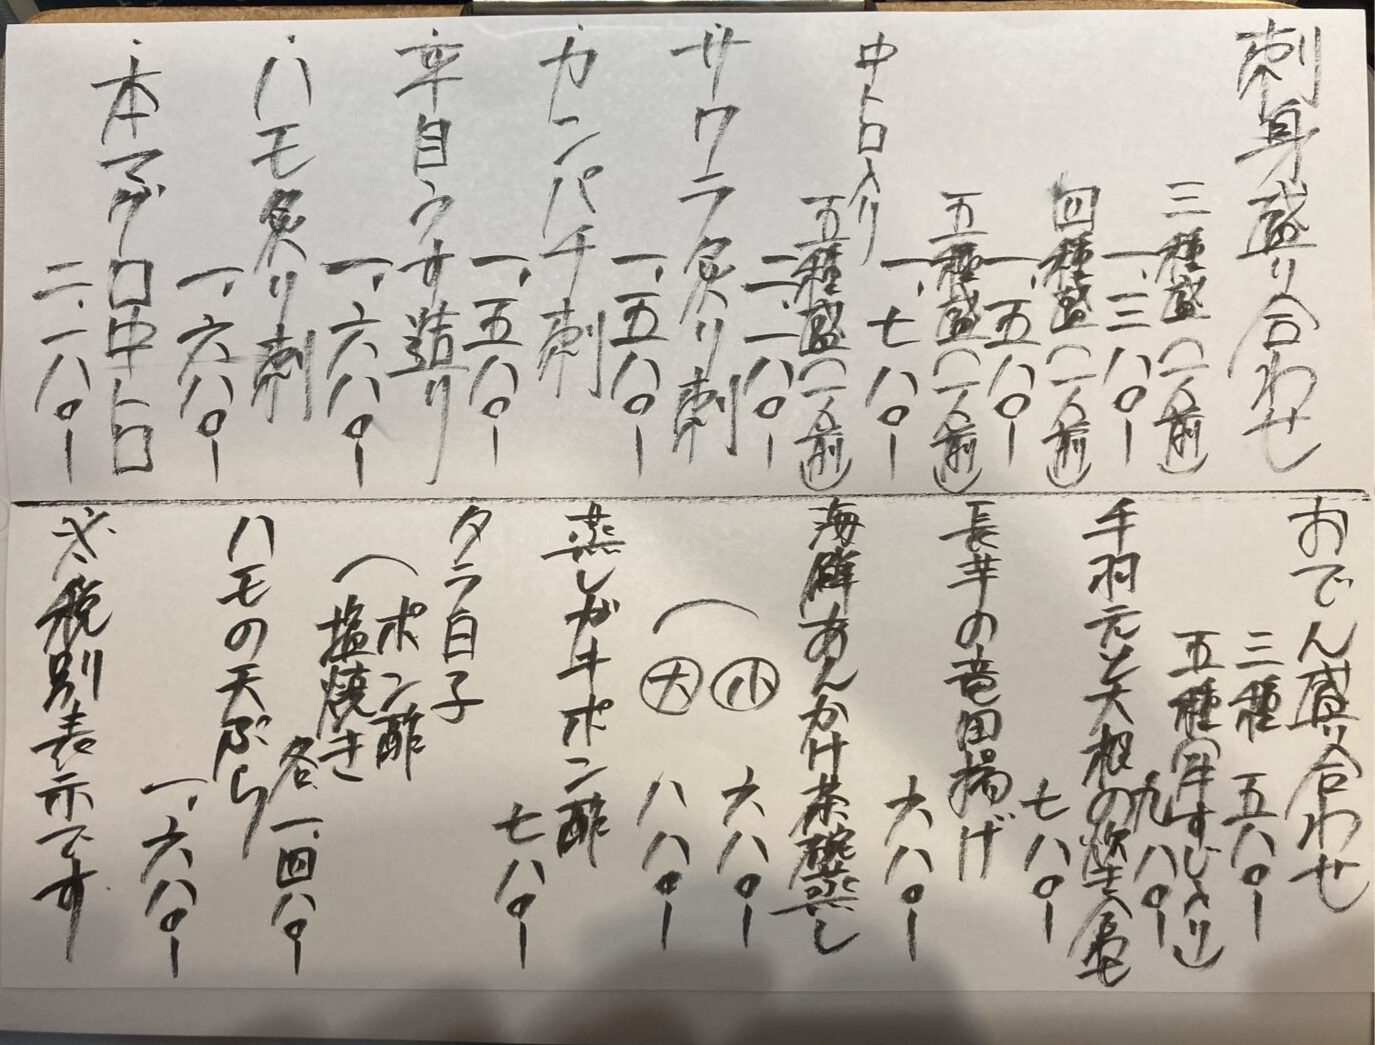 刺身盛り合わせ
三種盛(一人前)
一、三八〇ー
四種盛(一人前)
一、五八〇ー
五種盛(一人前)
一、七八〇ー
中トロ入り
五種盛(一人前)
二、一八〇ー
サワラ炙り刺
一、五八〇ー
カンパチ刺
一、五八〇ー
平目うす造り
一、六八〇ー
ハモ炙り刺
一、六八〇ー
本マグロ中トロ
二、一八〇ー
おでん盛り合わせ
三種 五八〇ー
五種(牛すじ入り)
九八〇ー
手羽元と大根の炊き合せ
七八〇ー
長芋の竜田揚げ
六八〇ー
海鮮あんかけ茶碗蒸し
小 六八〇ー
大 八八〇ー
蒸しガキポン酢
七八〇ー
タラ白子
ポン酢
塩焼き
各一、四八〇ー
ハモの天ぷら
一、六八〇ー
※税別表示です